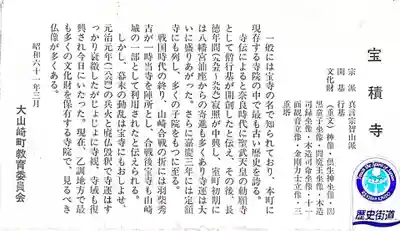 宝積寺
宗派 真言宗智山派
開基 行基
文化財 (重文)神像・倶生神坐像・闇
黒童子坐像・閻魔王坐像・木造
司録坐像・木造司命坐像・十一
面観音立像・金剛力士立像・三
重塔
一般には宝の寺の名で知られており、本町に
現存する寺院の中で最も古い歴史を誇る。
寺伝によると奈良時代に聖武天皇の勅願寺
として僧行基が開創したと伝え、その後、長
徳年間に寂照が中興し、室町初期に
は八幡宮油座からの寄進も多くあり寺運は大
いに盛りあがった。さらに嘉慶三年には定額
寺にも列し、多くの子院をもつに至る。
戦国時代の終り、山崎合戦の折には羽柴秀
吉が一時当寺を陣所とし、合戦後宝寺も山崎
城の一部として利用されたと伝えられる。
しかし、幕末の動乱は宝寺にもおしよせ、
元治元年の兵火と廃仏毀釈で寺運はす
っかり衰微したがじょじょに寺観、寺域も復
興され今日にいたった。現在、乙訓地方で最
も多くの文化財を保有する寺院で、見るべき
仏像が多くある。
昭和六十一年三月
大山崎町教育委員会
歴史街道